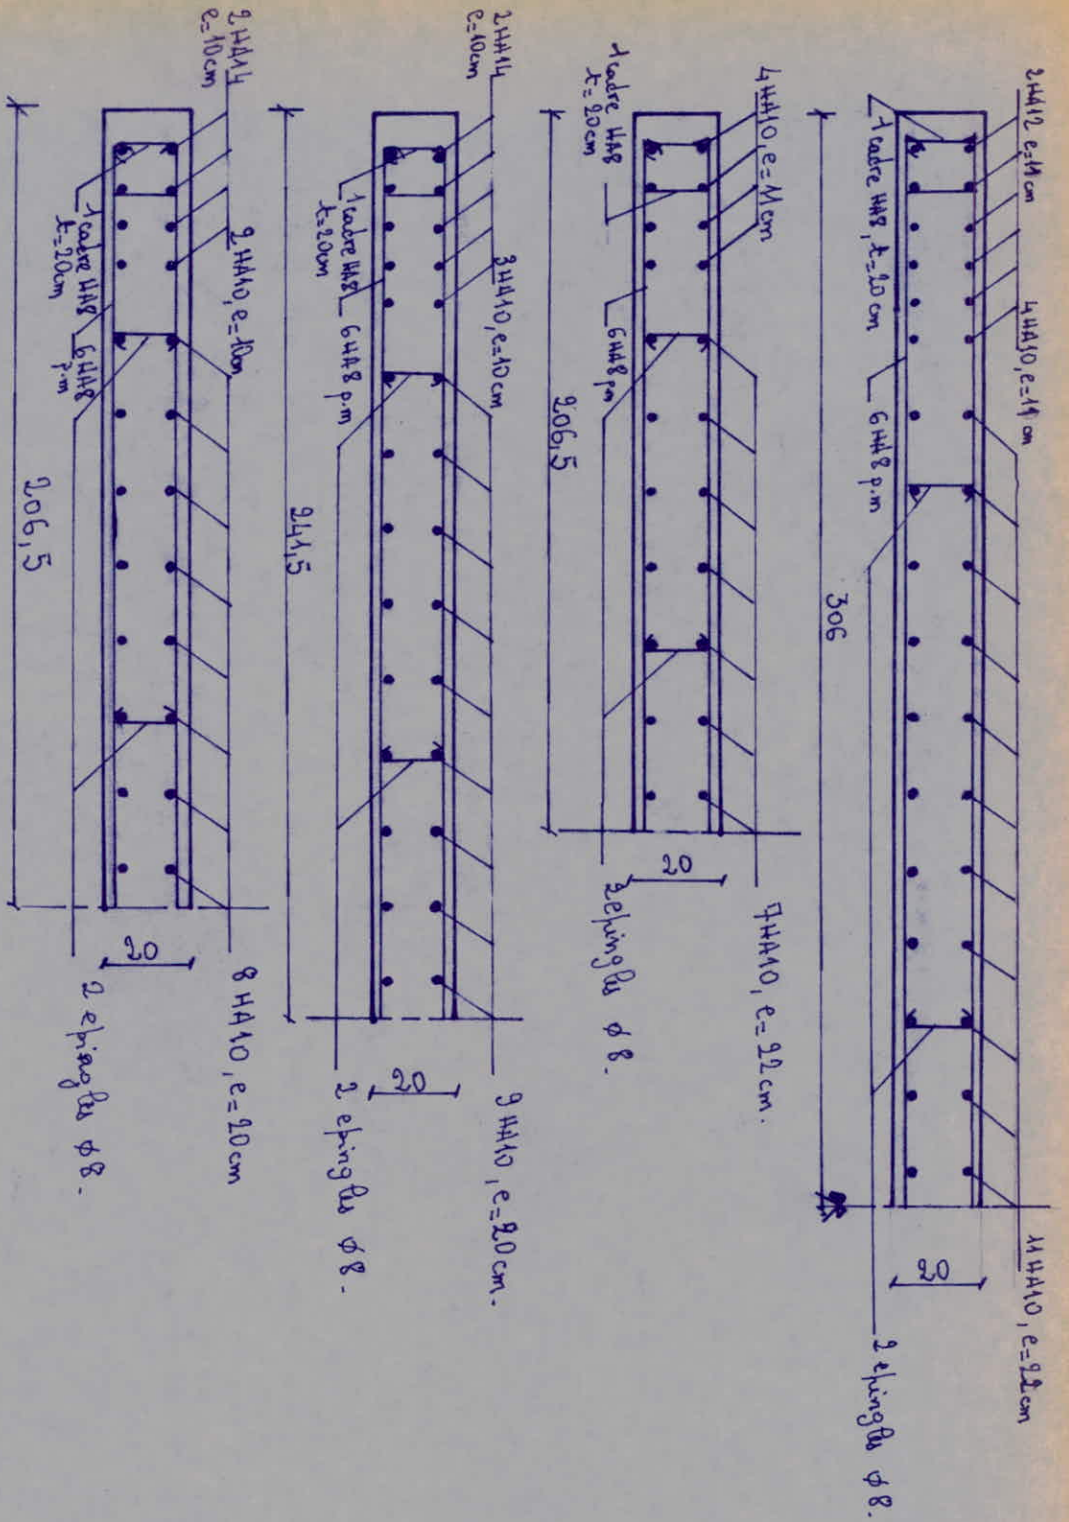 2HA12 e=11cm
4HA10, e=11cm
1 cadre HA8, t=20cm
6HA8 p.m
11HA10, e=22cm
306
20
2 epingles ø8.
4HA10, e=11cm
1 cadre HA8
t=20cm
6HA8 p.m
7HA10, e=22cm.
206,5
20
2 epingles ø8.
2HA14
e=10cm
3HA10, e=10cm
1 cadre HA8
t=20cm
6HA8 p.m
9HA10, e=20cm.
241,5
20
2 epingles ø8.
2HA14
e=10cm
2HA10, e=10cm
1 cadre HA8
t=20cm
6HA8
p.m
8HA10, e=20cm
206,5
20
2 epingles ø8.